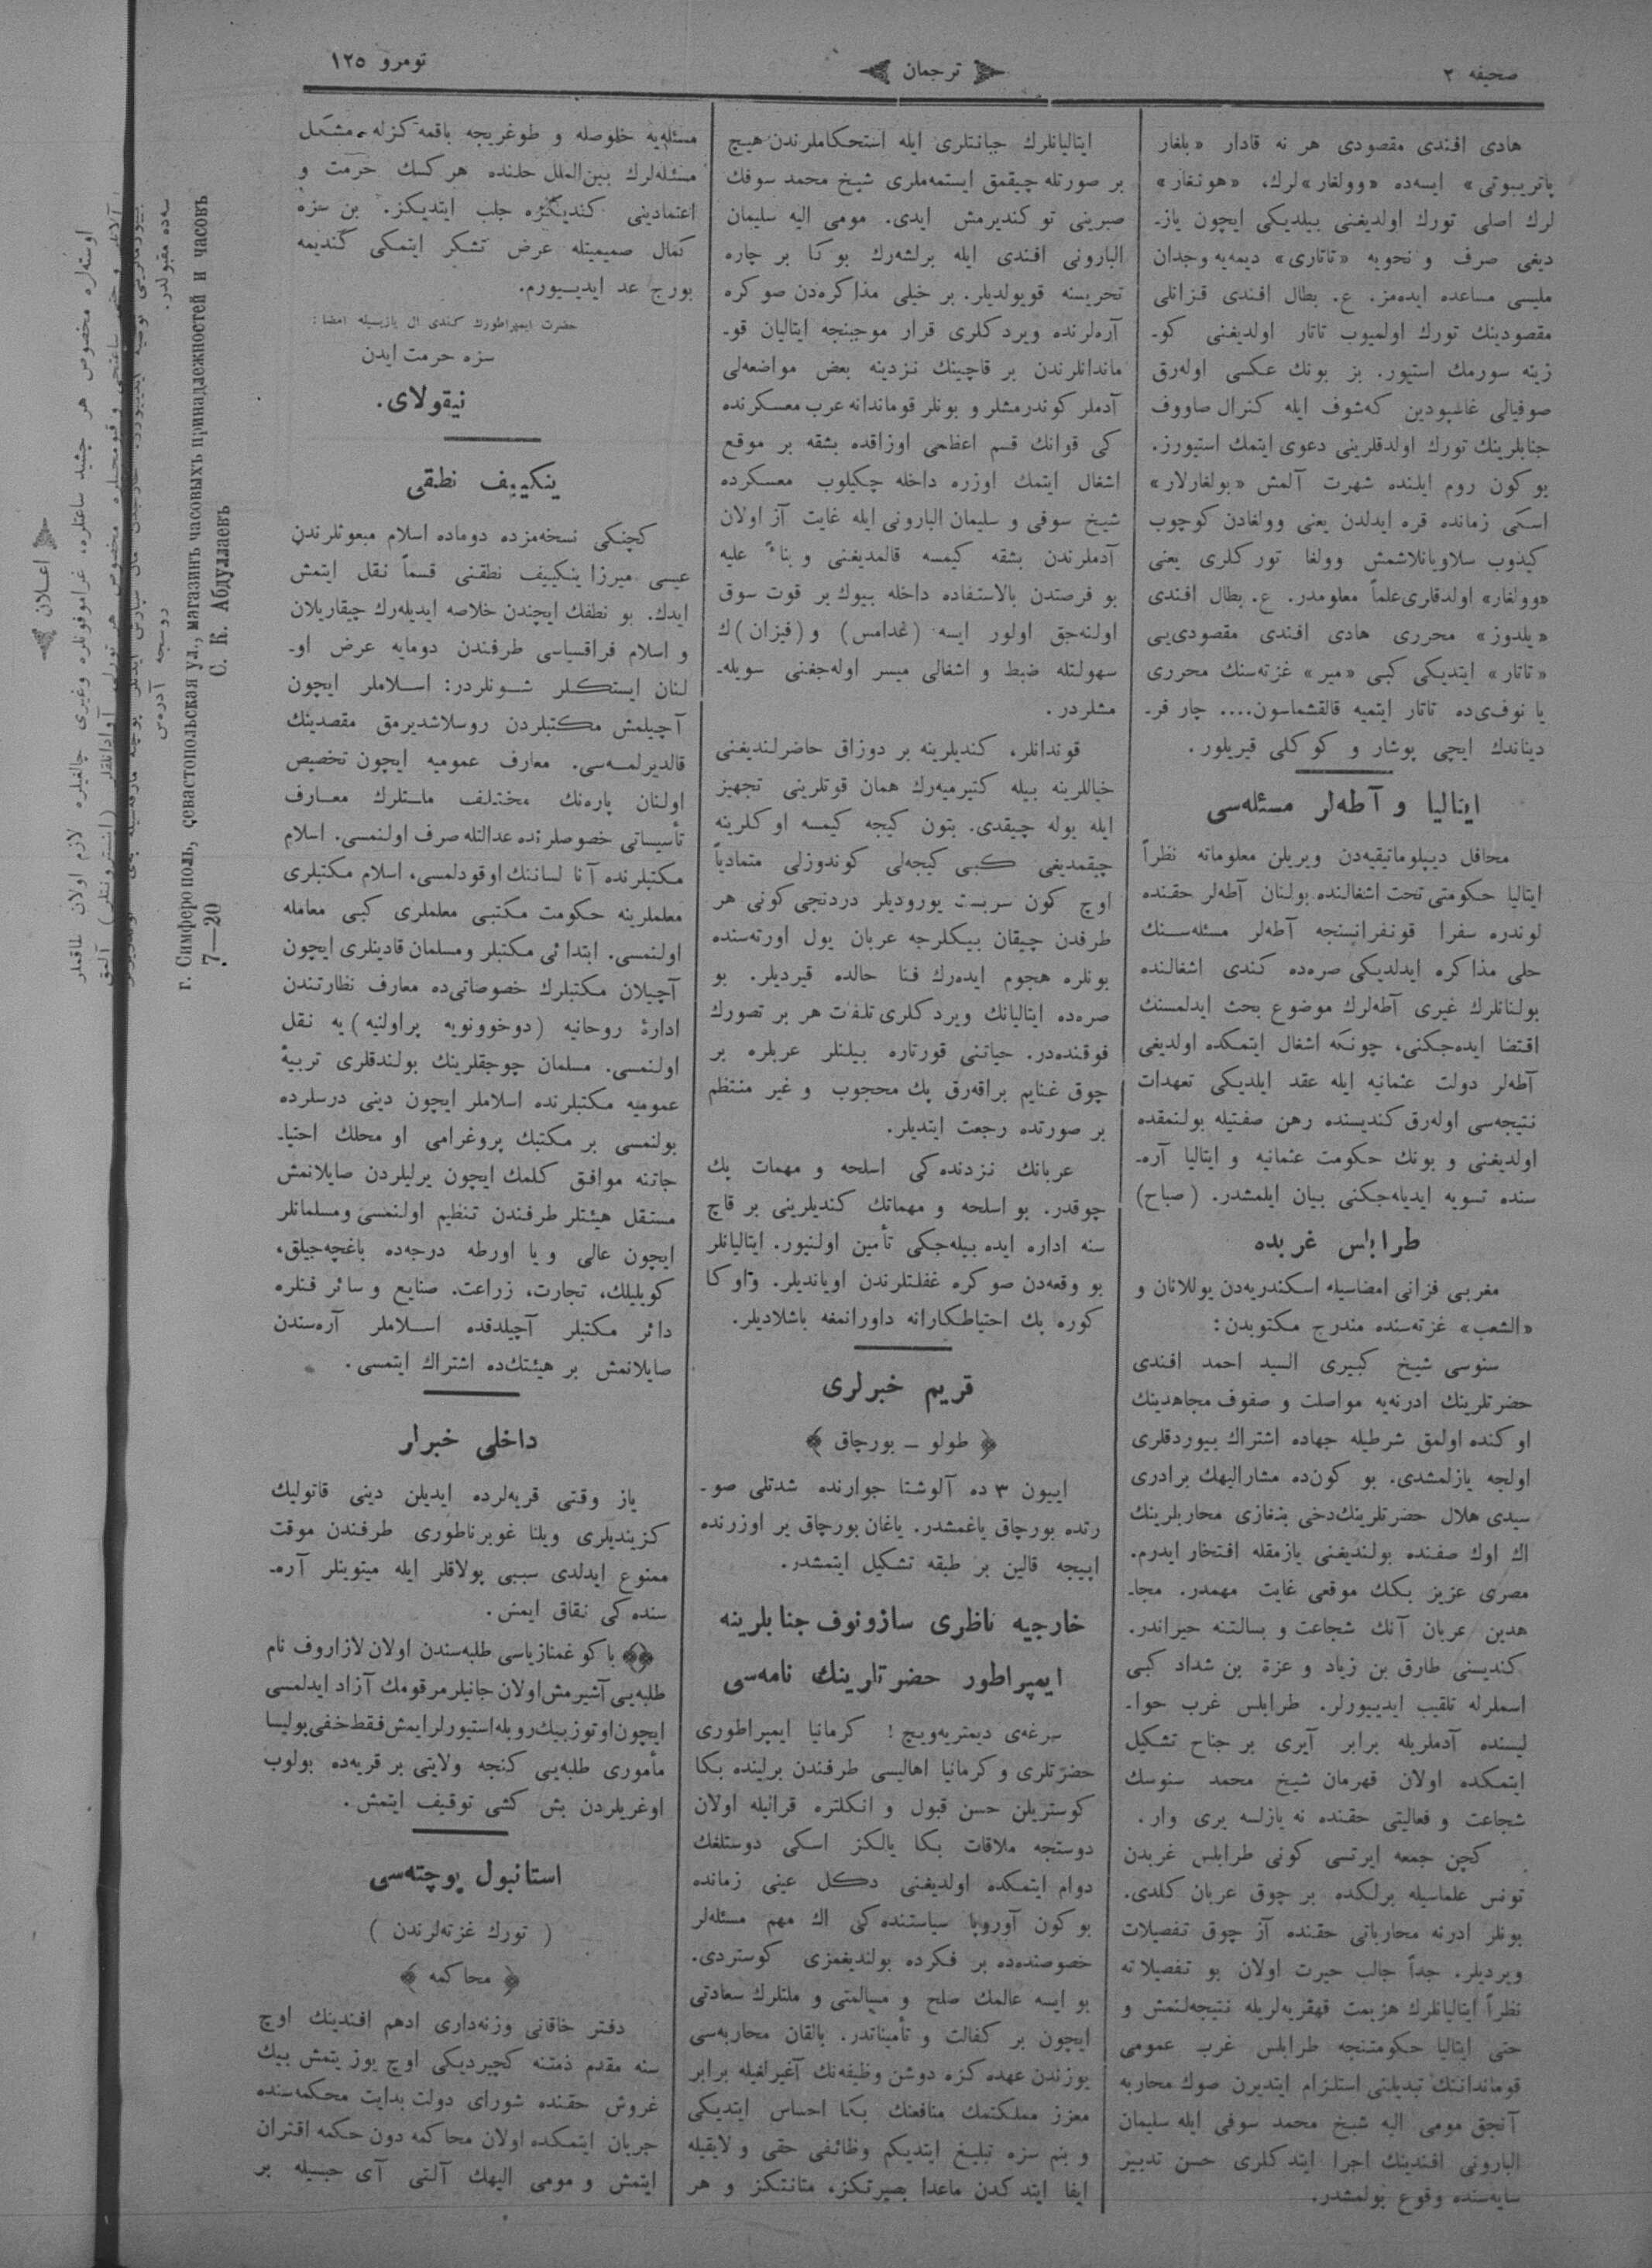 صحیفه ۲
ترجمان
نومرو ۱۲۵
هادی افندی مقصودی هر نه قادار «بلغار
پاتریوتی» ایسه‌ده «وولغار»لرك، «هونغار»
لرك اصلی تورك اولدیغنی بیلدیكی ایچون یاز-
دیغی صرف و نحویه «تاتاری» دیمه‌یه وجدان
ملیسی مساعده ایده‌مز. ع. بطال افندی قزانلی
مقصودینك تورك اولمیوب تاتار اولدیغنی كو-
زینه سورمك استیور. بز بونك عكسی اوله‌رق
صوفیالی غاسپودین كه‌شوف ایله كنرال صاووف
جنابلرینك تورك اولدقلرینی دعوی ایتمك استیورز.
بو كون روم ایلنده شهرت آلمش «بولغارلار»
اسكی زمانده قره ایدلدن یعنی وولغادن كوچوب
كیدوب سلاویانلاشمش وولغا توركلری یعنی
«وولغار» اولدقلری علماً معلومدر. ع. بطال افندی
«یلدوز» محرری هادی افندی مقصودی‌یی
«تاتار» ایتدیكی كبی «میر» غزته‌سنك محرری
یا نوف‌ی‌ده تاتار ایتمیه قالقشماسون.... چار فر-
دیناندك ایچی پوشار و كوكلی قیریلور.
ایتالیا و آطه‌لر مسئله‌سی
محافل دیپلوماتیقیه‌دن ویریلن معلوماته نظراً
ایتالیا حكومتی تحت اشغالنده بولنان آطه‌لر حقنده
لوندره سفرا قونفرانسنجه آطه‌لر مسئله‌سنك
حلی مذاكره ایدلدیكی صره‌ده كندی اشغالنده
بولنانلرك غیری آطه‌لرك موضوع بحث ایدلمسنك
اقتضا ایده‌جكنی، چونكه اشغال ایتمكده اولدیغی
آطه‌لر دولت عثمانیه ایله عقد ایلدیكی تعهدات
نتیجه‌سی اوله‌رق كندیسنده رهن صفتیله بولنمقده
اولدیغنی و بونك حكومت عثمانیه و ایتالیا آره-
سنده تسویه ایدیله‌جكنی بیان ایلمشدر. (صباح)
طرابلس غربده
مغربی فزانی امضاسیله اسكندریه‌دن یوللانان و
«الشعب» غزته‌سنده مندرج مكتوبدن:
سنوسی شیخ كبیری السید احمد افندی
حضرتلرینك ادرنه‌یه مواصلت و صفوف مجاهدینك
اوكنده اولمق شرطیله جهاده اشتراك بیوردقلری
اولجه یازلمشدی. بو كون‌ده مشارالیهك برادری
سیدی هلال حضرتلرینك‌دخی بنغازی محاربلرینك
اك اوك صفنده بولندیغنی یازمقله افتخار ایدرم.
مصری عزیز بكك موقعی غایت مهمدر. مجا-
هدین عربان آنك شجاعت و بسالتنه حیراندر.
كندیسنی طارق بن زیاد و عزة بن شداد كبی
اسملرله تلقیب ایدییورلر. طرابلس غرب حوا-
لیسنده آدملریله برابر آیری بر جناح تشكیل
ایتمكده اولان قهرمان شیخ محمد سنوسك
شجاعت و فعالیتی حقنده نه یازلسه یری وار.
كچن جمعه ایرتسی كونی طرابلس غربدن
تونس علماسیله برلكده بر چوق عربان كلدی.
بونلر ادرنه محارباتی حقنده آز چوق تفصیلات
ویردیلر. جداً جالب حیرت اولان بو تفصیلاته
نظراً ایتالیانلرك هزیمت قهقریه‌لریله نتیجه‌لنمش و
حتی ایتالیا حكومتنجه طرابلس غرب عمومی
قومانداننك تبدیلنی استلزام ایتدیرن صوك محاربه
آنجق مومی الیه شیخ محمد سوفی ایله سلیمان
البارونی افندینك اجرا ایتدكلری حسن تدبیر
سایه‌سنده وقوع بولمشدر.
ایتالیانلرك جبانتلری ایله استحكاملرندن هیچ
بر صورتله چیقمق ایستمه‌ملری شیخ محمد سوفك
صبرینی توكندیرمش ایدی. مومی الیه سلیمان
البارونی افندی ایله برلشه‌رك بوكا بر چاره
تحریسنه قویولدیلر. بر خیلی مذاكره‌دن صوكره
آره‌لرنده ویردكلری قرار موجبنجه ایتالیان قو-
ماندانلرندن بر قاچینك نزدینه بعض مواضعه‌لی
آدملر كوندرمشلر و بونلر قوماندانه عرب معسكرنده
كی قوانك قسم اعظمی اوزاقده بشقه بر موقع
اشغال ایتمك اوزره داخله چكیلوب معسكرده
شیخ سوفی و سلیمان البارونی ایله غایت آز اولان
آدملرندن بشقه كیمسه قالمدیغنی و بناءً علیه
بو فرصتدن بالاستفاده داخله بیوك بر قوت سوق
اولنه‌جق اولور ایسه (غدامس) و (فیزان)ك
سهولتله ضبط و اشغالی میسر اوله‌جغنی سویله-
مشلردر.
قوندانلر، كندیلرینه بر دوزاق حاضرلندیغنی
خیاللرینه بیله كتیرمیه‌رك همان قوتلرینی تجهیز
ایله یوله چیقدی. بتون كیجه كیمسه اوكلرینه
چیقمدیغی كبی كیجه‌لی كوندوزلی متمادیاً
اوچ كون سربست یورودیلر دردنجی كونی هر
طرفدن چیقان بیكلرجه عربان یول اورته‌سنده
بونلره هجوم ایده‌رك فنا حالده قیردیلر. بو
صره‌ده ایتالیانك ویردكلری تلفات هر بر تصورك
فوقنده‌در. حیاتنی قورتاره بیلنلر عربلره بر
چوق غنایم براقه‌رق پك محجوب و غیر منتظم
بر صورتده رجعت ایتدیلر.
عربانك نزدنده‌كی اسلحه و مهمات پك
چوقدر. بو اسلحه و مهماتك كندیلرینی بر قاچ
سنه اداره ایده بیله‌جكی تأمین اولنیور. ایتالیانلر
بو وقعه‌دن صوكره غفلتلرندن اویاندیلر. واوكا
كوره پك احتیاطكارانه داورانمغه باشلادیلر.
قریم خبرلری
طولو – بورچاق
اییون ۳ ده آلوشتا جوارنده شدتلی صو-
رتده بورچاق یاغمشدر. یاغان بورچاق یر اوزرنده
اپیجه قالین بر طبقه تشكیل ایتمشدر.
خارجیه ناظری سازونوف جنابلرینه
ایمپراطور حضرتلرینك نامه‌سی
سرغه‌ی دیمتریه‌ویچ! كرمانیا ایمپراطوری
حضرتلری و كرمانیا اهالیسی طرفندن برلینده بكا
كوستریلن حسن قبول و انكلتره قرالیله اولان
دوستجه ملاقات بكا یالكز اسكی دوستلغك
دوام ایتمكده اولدیغنی دكل عینی زمانده
بو كون آوروپا سیاستنده‌كی اك مهم مسئله‌لر
خصوصنده‌ده بر فكرده بولندیغمزی كوستردی.
بو ایسه عالمك صلح و مسالمتی و ملتلرك سعادتی
ایچون بر كفالت و تأمیناتدر. بالقان محاربه‌سی
یوزندن عهده كزه دوشن وظیفه‌نك آغیرلغیله برابر
معزز مملكتمك منافعنك بكا احساس ایتدیكی
و بنم سزه تبلیغ ایتدیكم وظائفی حقی و لایقیله
ایفا ایتدكدن ماعدا بصیرتكز، متانتكز و هر
مسئله‌یه خلوصله و طوغریجه باقمه كزله، مشكل
مسئله‌لرك بین‌الملل حلنده هر كسك حرمت و
اعتمادینی كندیكزه جلب ایتدیكز. بن سزه
كمال صمیمیتله عرض تشكر ایتمكی كندیمه
بورج عد ایدییورم.
حضرت ایمپراطورك كندی ال یازیسیله امضا:
سزه حرمت ایدن
نیقولای.
ینكییف نطقی
كچنكی نسخه‌مزده دوماده اسلام مبعوثلرندن
عیسی میرزا ینكییف نطقنی قسماً نقل ایتمش
ایدك. بو نطقك ایچندن خلاصه ایدیله‌رك چیقاریلان
و اسلام فراقسیاسی طرفندن دومایه عرض او-
لنان ایستكلر شونلردر: اسلاملر ایچون
آچیلمش مكتبلردن روسلاشدیرمق مقصدینك
قالدیرلمه‌سی. معارف عمومیه ایچون تخصیص
اولنان پاره‌نك مختلف ملتلرك معارف
تأسیساتی خصوصلرنده عدالتله صرف اولنمسی. اسلام
مكتبلرنده آنا لساننك اوقودلمسی، اسلام مكتبلری
معلملرینه حكومت مكتبی معلملری كبی معامله
اولنمسی. ابتدائی مكتبلر و مسلمان قادینلری ایچون
آچیلان مكتبلرك خصوصاتی‌ده معارف نظارتندن
ادارهٔ روحانیه (دوخوونویه پراولنیه)یه نقل
اولنمسی. مسلمان چوجقلرینك بولندقلری تربیهٔ
عمومیه مكتبلرنده اسلاملر ایچون دینی درسلرده
بولنمسی بر مكتبك پروغرامی او محلك احتیا-
جاتنه موافق كلمك ایچون یرلیلردن صایلانمش
مستقل هیئتلر طرفندن تنظیم اولنمسی ومسلمانلر
ایچون عالی و یا اورطه درجه‌ده باغچه‌جیلق،
كویلیلك، تجارت، زراعت. صنایع و سائر فنلره
دائر مكتبلر آچیلدقده اسلاملر آره‌سندن
صایلانمش بر هیئتك‌ده اشتراك ایتمسی.
داخلی خبرلر
یاز وقتی قریه‌لرده ایدیلن دینی قاتولیك
كزیندیلری ویلنا غوبرناطوری طرفندن موقت
ممنوع ایدلدی سببی پولاقلر ایله میتوینلر آره-
سنده‌كی نفاق ایمش.
باكو غمنازیاسی طلبه‌سندن اولان لازاروف نام
طلبه‌یی آشیرمش اولان جانیلر مرقومك آزاد ایدلمسی
ایچون اوتوز بیك روبله استیورلر ایمش فقط خفی پولیسا
مأموری طلبه‌یی كنجه ولایتی بر قریه‌ده بولوب
اوغریلردن بش كشی توقیف ایتمش.
استانبول پوچته‌سی
(تورك غزته‌لرندن)
محاكمه
دفتر خاقانی وزنه‌داری ادهم افندینك اوچ
سنه مقدم ذمتنه كچیردیكی اوچ یوز یتمش بیك
غروش حقنده شورای دولت بدایت محكمه‌سنده
جریان ایتمكده اولان محاكمه دون حكمه اقتران
ایتمش و مومی الیهك آلتی آی حبسیله بر
اعلان
اوسته‌لره مخصوص هر چشید ساعتلره، غراموفونلره وغیری چالغیلره لازم اولان طاقملر
سه‌ده مقبولدر.
روسجه آدره‌س
г. Симферополь, севастопольская ул., магазинъ часовыхъ принадлежностей и часовъ
С. К. Абдуллаевъ
7—20